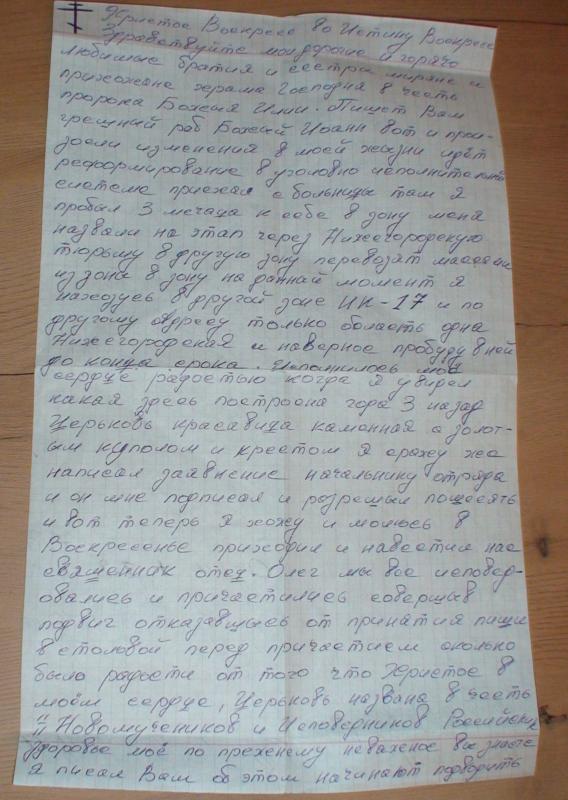 Христос Воскресе Во Истину Воскресе
Здравствуйте мои дорогие и горячо
любимые братия и сестры миряне и
прихожане храма Господня в честь
пророка Божия Илии. Пишет Вам
грешний раб Божий Иоанн вот и прои-
зошли изменения в моей жизни идёт
реформирование в уголовно исполнительно
системе приехал с больницы там я
пробыл 3 месяца к себе в зону меня
назвали на этап через Нижегородскую
тюрьму в другую зону перевозят массами
из зоны в зону на данный момент я
нахожусь в другой зоне ИК-17 и по
другому адресу только область одна
Нижегородская и наверное пробуду в ней
до конца срока. Исполнилось моё
сердце радостью когда я увидел
какая здесь построена года 3 назад
Церьковь красавица каменная с золот-
ым куполом и крестом я сразу же
написал заявление начальнику отряда
и он мне подписал и розрешыл посещять
и вот теперь я хожу и молюсь в
Воскресенье приходил и навестил нас
священник отец. Олег мы все исповед-
овались и причастились совершив
подвиг отказавшысь от принятия пищи
в столовой перед причастием сколько
было радости от того что Христос в
моём сердце, Церьковь названа в честь
"Новомучеников и Исповедников Российских
Здоровье моё по прежнему неважное вы знаете
я писал Вам об этом начинают подводить